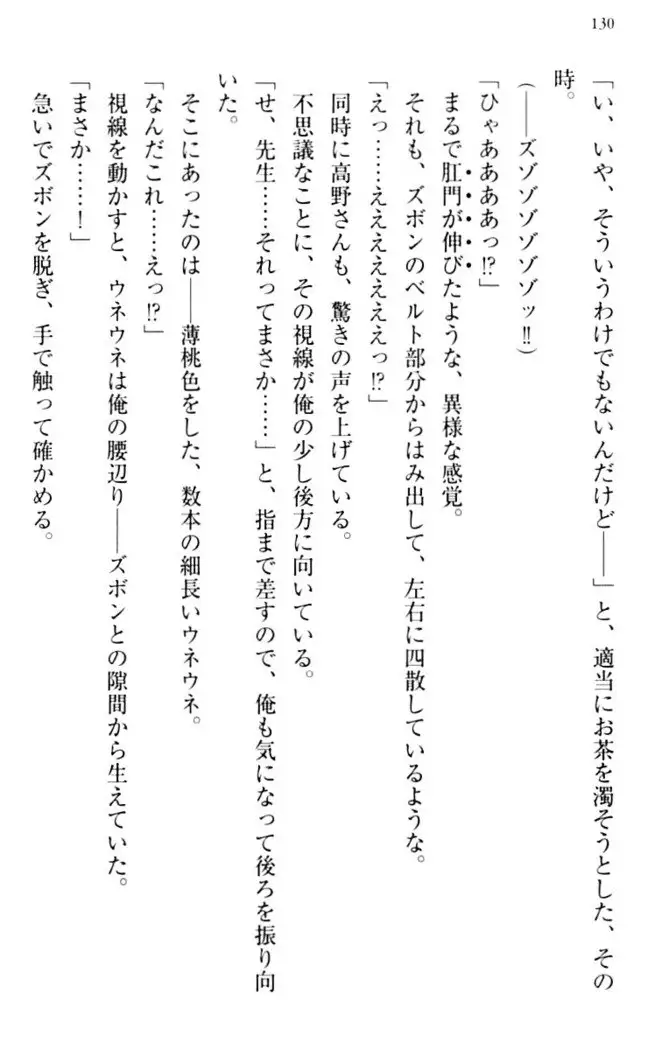 130
「い、いや、そういうわけでもないんだけど――」と、適当にお茶を濁そうとした、その
時。
(――ズゾゾゾゾゾゾッ!!)
「ひゃああああっ!?」
まるで肛門が伸びたような、異様な感覚。
それも、ズボンのベルト部分からはみ出して、左右に四散しているような。
「えっ……えええええええっ!?」
同時に高野さんも、驚きの声を上げている。
不思議なことに、その視線が俺の少し後方に向いている。
「せ、先生……それってまさか……」と、指まで差すので、俺も気になって後ろを振り向
いた。
そこにあったのは――薄桃色をした、数本の細長いウネウネ。
「なんだこれ……えっ!?」
視線を動かすと、ウネウネは俺の腰辺り――ズボンとの隙間から生えていた。
「まさか……!」
急いでズボンを脱ぎ、手で触って確かめる。